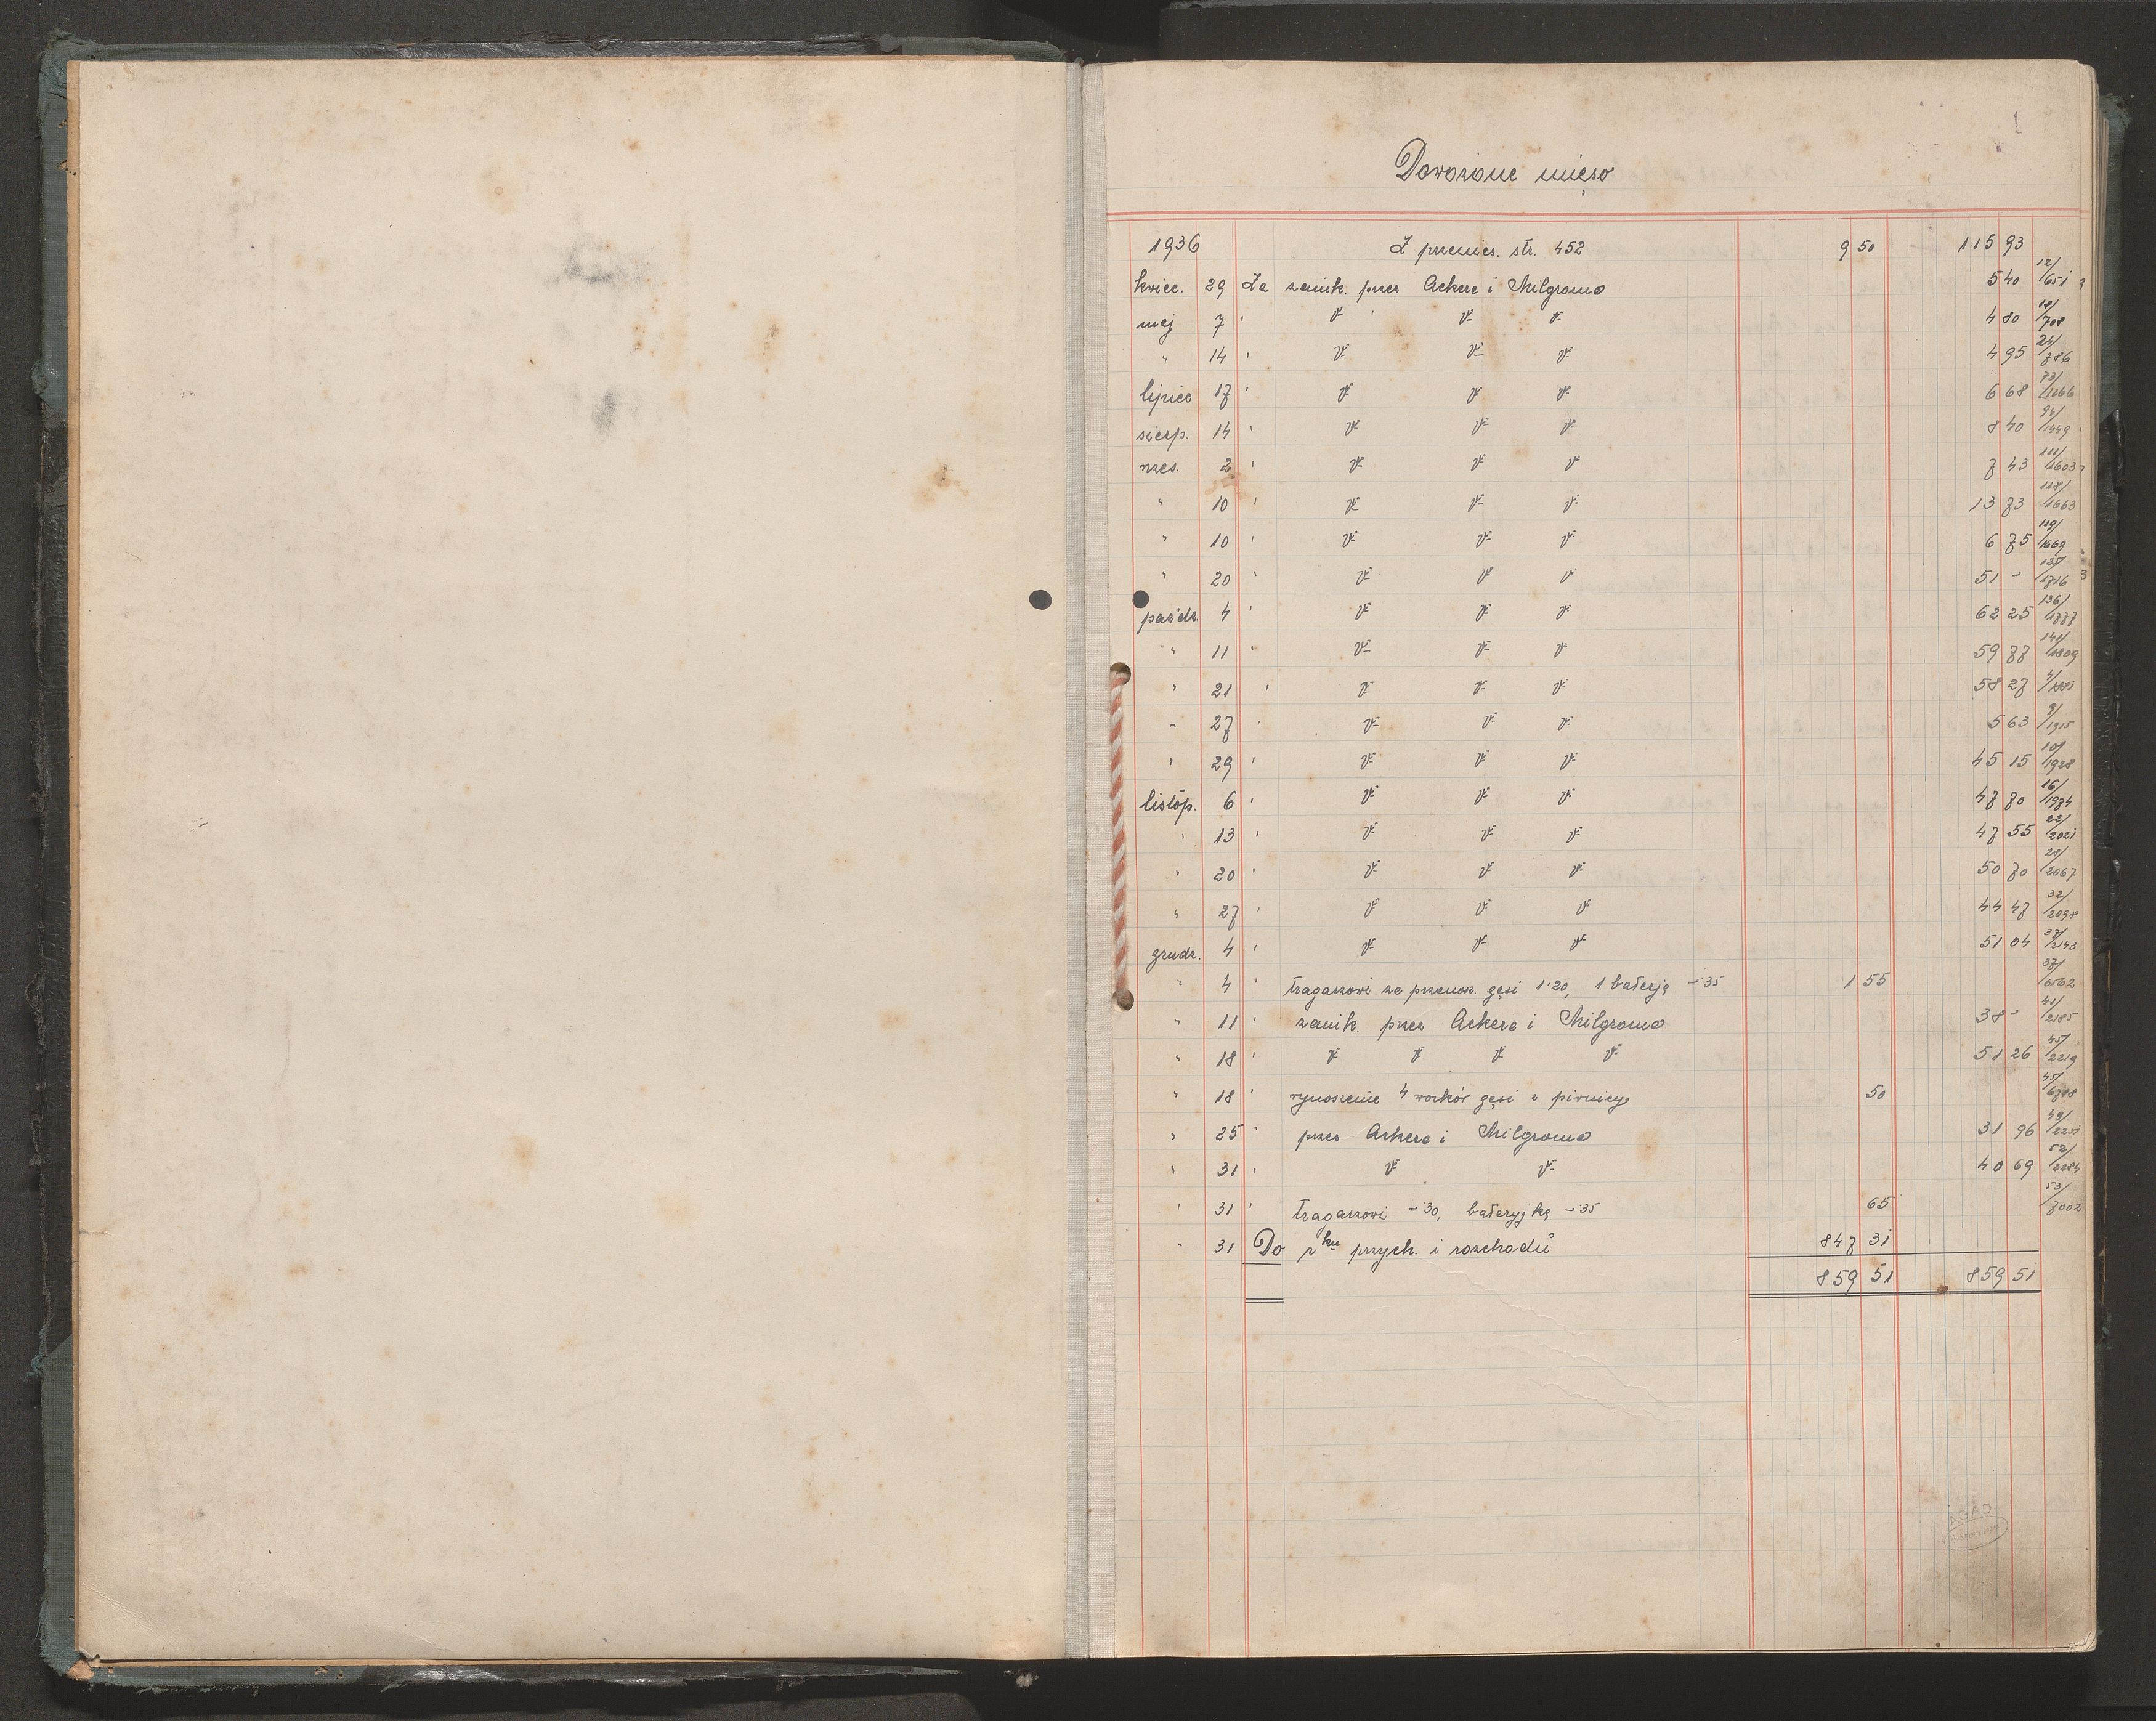 1
Dowożone mięso
1936 Z przenies. str. 452 9 50 115 93
kwiec. 29 Za zamk. przez Ackera i Milgroma 5 40 12/651
maj 7 " " " " 4 80 18/708
" 14 " " " " 4 95 24/786
lipiec 17 " " " " 6 68 73/1266
sierp. 14 " " " " 8 40 94/1449
wrześ. 2 " " " " 7 43 111/1603
" 10 " " " " 13 73 118/1663
" 10 " " " " 6 75 119/1669
" 20 " " " " 51 - 125/1716
paźdz. 4 " " " " 62 25 136/1777
" 11 " " " " 59 77 140/1809
" 21 " " " " 58 27 4/1881
" 27 " " " " 5 63 9/1915
" 29 " " " " 45 15 10/1928
listop. 6 " " " " 47 70 16/1974
" 13 " " " " 47 55 22/2021
" 20 " " " " 50 70 28/2067
" 27 " " " " 44 47 32/2098
grudz. 4 " " " " 51 04 37/2143
" 4 " tragarzowi za przenosz. gęsi 1·20, 1 baterję -·35 1 55 37/6562
" 11 " zamk. przez Ackera i Milgroma 38 - 41/2185
" 18 " " " " " 51 26 45/2219
" 18 " wynoszenie 4 worków gęsi z piwnicy 50 45/6788
" 25 " przez Ackera i Milgroma 31 96 49/2251
" 31 " " " 40 69 52/2284
" 31 " tragarzowi -·30, bateryjkę -·35 65 53/7002
" 31 Do rku przych. i rozchodu 847 31
859 51 859 51
AGAD